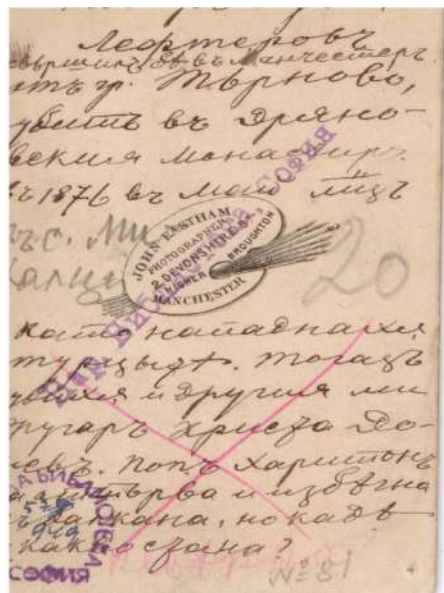 Лефтеровъ
свършилъ въ Манчестеръ.
отъ гр. Търново,
убитъ въ Дряно-
вския Монастир.
въ 1876 въ Май
въ с. Ми
JOHN EASTHAM
PHOTOGRAPHER
2, DEVONSHIRE ST
HIGHER BROUGHTON
MANCHESTER
20
СОФИЯ
като нападнахѫ
турцытѣ. тогазъ
убихѫ и другия ми
другаръ Христа До-
невъ. попъ Харитонъ
и избѣгна
Балкана, но кадѣ
како стана?
БИБЛИОТЕКА
СОФИЯ
949
№ 81